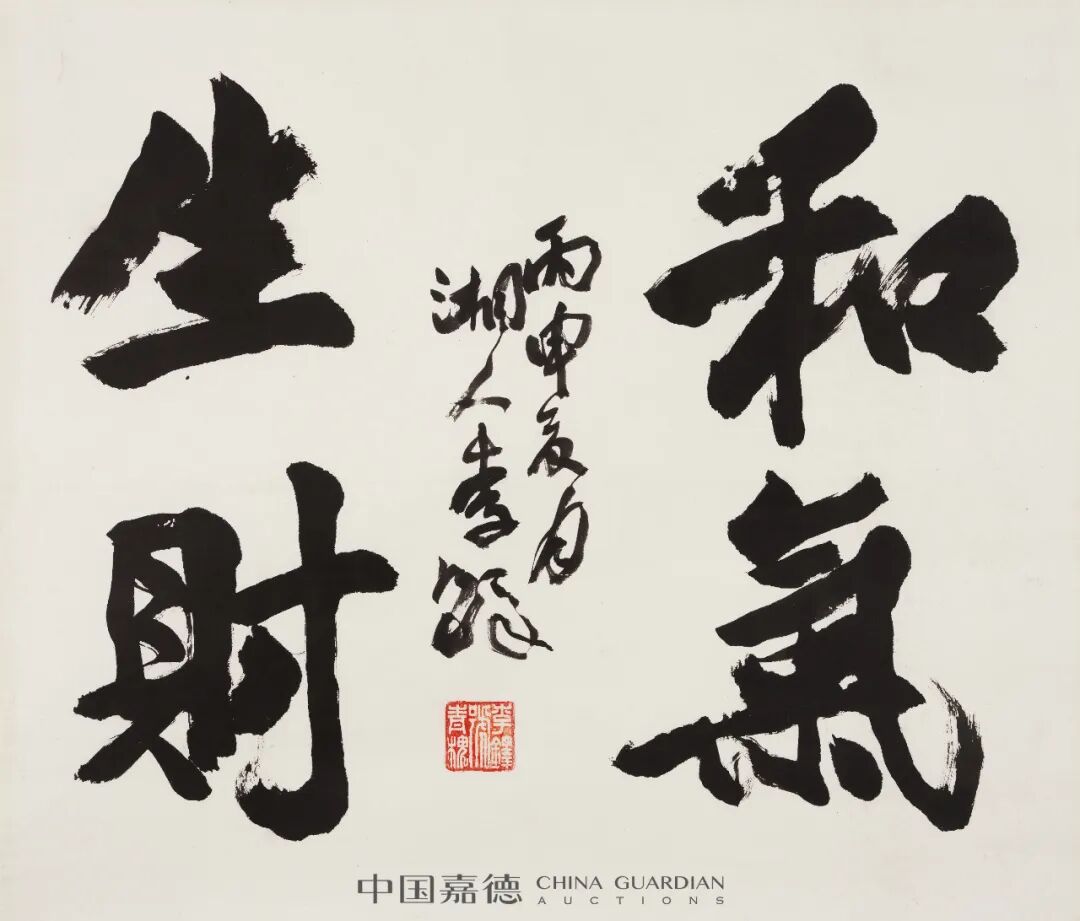 和氣
生財
丙申夏月
湘人李鐸
李鐸號青槐
中国嘉德 CHINA GUARDIAN
AUCTIONS